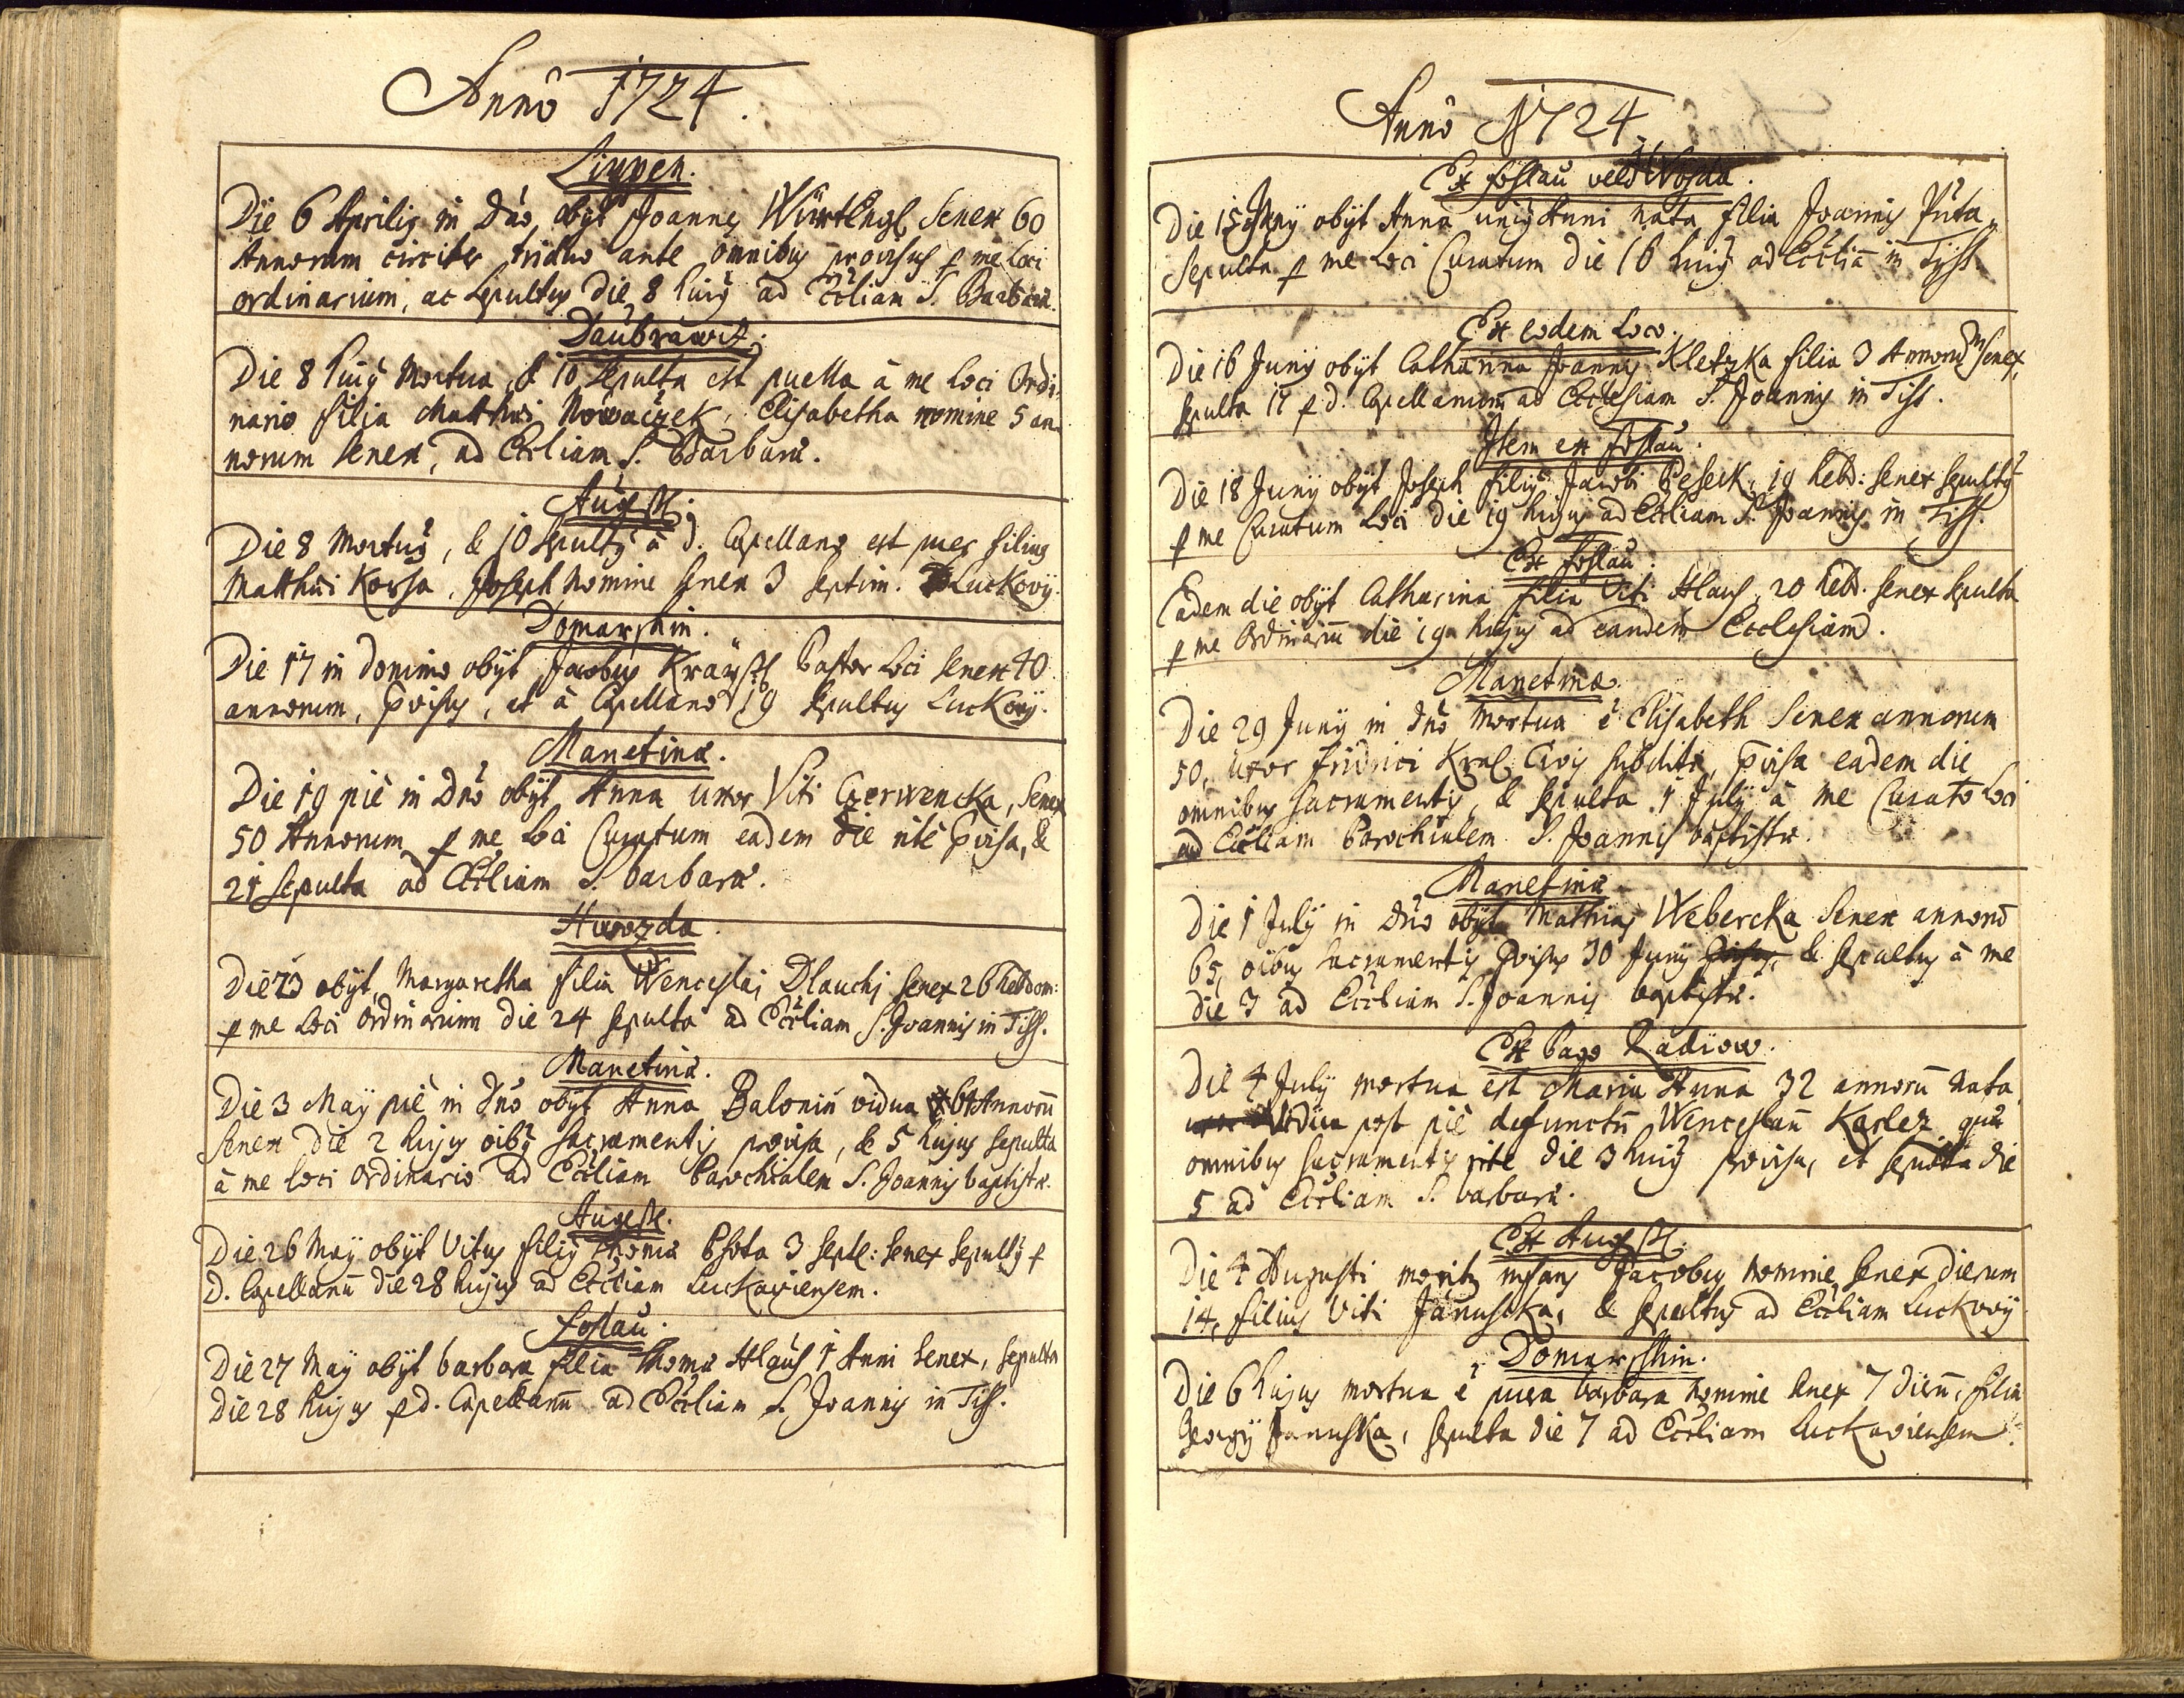 Anno 1724.
Lippen.
Die 6 Aprilis in Dno obÿt Joannes Würtlengl Senex 60
Annorum circiter triduo ante omnibus provisus p me Loci
ordinarium, ac sepultus die 8 huius ad Eccliam S. Barbaræ.
Daubrawit.
Die 8 huius Mortua, & 10 sepulta est puella à me Loci Ordi,
nario filia Matthæi Nowaczek, Elisabetha nomine 5 an,
norum senex, ad Eccliam S. Barbaræ.
Augesst.
Die 8 Mortus, & 10 sepultus à d. Capellano est puer filius
Matthæi Korsa, Joseph nomine senex 3 septim. Luckovÿ.
Domarshin.
Die 17 in domino obÿt Jacobus Pastor Loci senex 40
annorum, pvisus, et à Capellano 19 sepultus Luckovÿ.
Manetinæ.
Die 19 piè in Dno obÿt Anna uxor Viti Czerwencka, Senex
50 Annorum p me Loci Curatum eadem die ritè pvisa, &
21 sepulta ad Eccliam S. barbaræ.
Hwozda.
Die 23 obÿt Margaretha filia Wenceslai Dlauchi senex 26 hebdom:
p me Loci ordinarium die 24 sepulta ad Eccliam S. Joannis in Tiss.
Manetinæ.
Die 3 Maÿ piè in Dno obÿt Anna Balonin vidua 61 Annorū
senex die 2 hujus oibus sacramentis provisa, & 5 hujus sepulta
à me loci Ordinario ad Eccliam Parochialem S. Joannis baptistæ.
Augesst.
Die 26 Maÿ obÿt Vitus filius Thomæ Psota 3 septi: senex sepultus p
D. Capellanū die 28 hujus ad Eccliam Luckoviensem.
Foslau.
Die 27 Maÿ obÿt barbara filia Thomæ Hlaus 1 Anni senex, sepulta
die 28 hujus p d. Capellanū ad Eccliam S. Joannis in Tiss.
Anno 1724.
Ex Foslau
Die 15 Junÿ obÿt Anna unius Anni nata filia Joannis Puta,
Sepulta p me Loci Curatum die 16 huius ad Eccliā in Tÿss.
Ex eodem Loco.
Die 16 Junÿ obÿt Catharina Joannis Kletzka filia 3 Annorū senex,
sepulta 17 p d. Capellanum ad Ecclesiam S. Joannis in Tiss.
Item ex Foslau.
Die 18 Junÿ obÿt Joseph filius Jacobi Peseck, 19 hebd: senex sepultus
p me Curatum Loci die 19 hujus ad Eccliam S. Joannis in Tiss.
Ex Foslau.
Eadem die obÿt Catharina filia Viti Hlaus, 20 hebd. senex sepulta
p me Ordinariū die 19 hujus ad eandem Ecclesiam.
Manetinæ.
Die 29 Junÿ in Dno Mortua ē Elisabeth Senex annorum
50, uxor Fridrici Kral Civis subditi, pvisa eadem die
omnibus sacramentis, & sepulta 1 Julÿ à me Curato Loci
ad Eccliam Parochialem S. Joannis baptistæ.
Manetinæ
Die 1 Julÿ in Dno obÿt Mathias Webercka senex annorū
65, oibus sacramentis pvisus 30 Junÿ & sepultus à me
die 3 ad Eccliam S. Joannis baptistæ.
Ex Pago Radiow.
Die 4 Julÿ mortua est Maria Anna 32 annorū nata
Vidua post piè defunctū Wenceslaū Karlez quæ
omnibus sacramentis ritè die 3 huius provisa, et sepulta die
5 ad Eccliam S. barbaræ.
Ex Augesst.
Die 4 Augusti infans Jacobus nomine senex dierum
14, filius Viti Januschka, & sepultus ad Eccliam Luckovÿ
Domarsshin.
Die 6 hujus mortua ē puera barbara nomine senex 7 dierū, filia
Georgÿ Januska, sepulta die 7 ad Eccliam Luckaviensem.